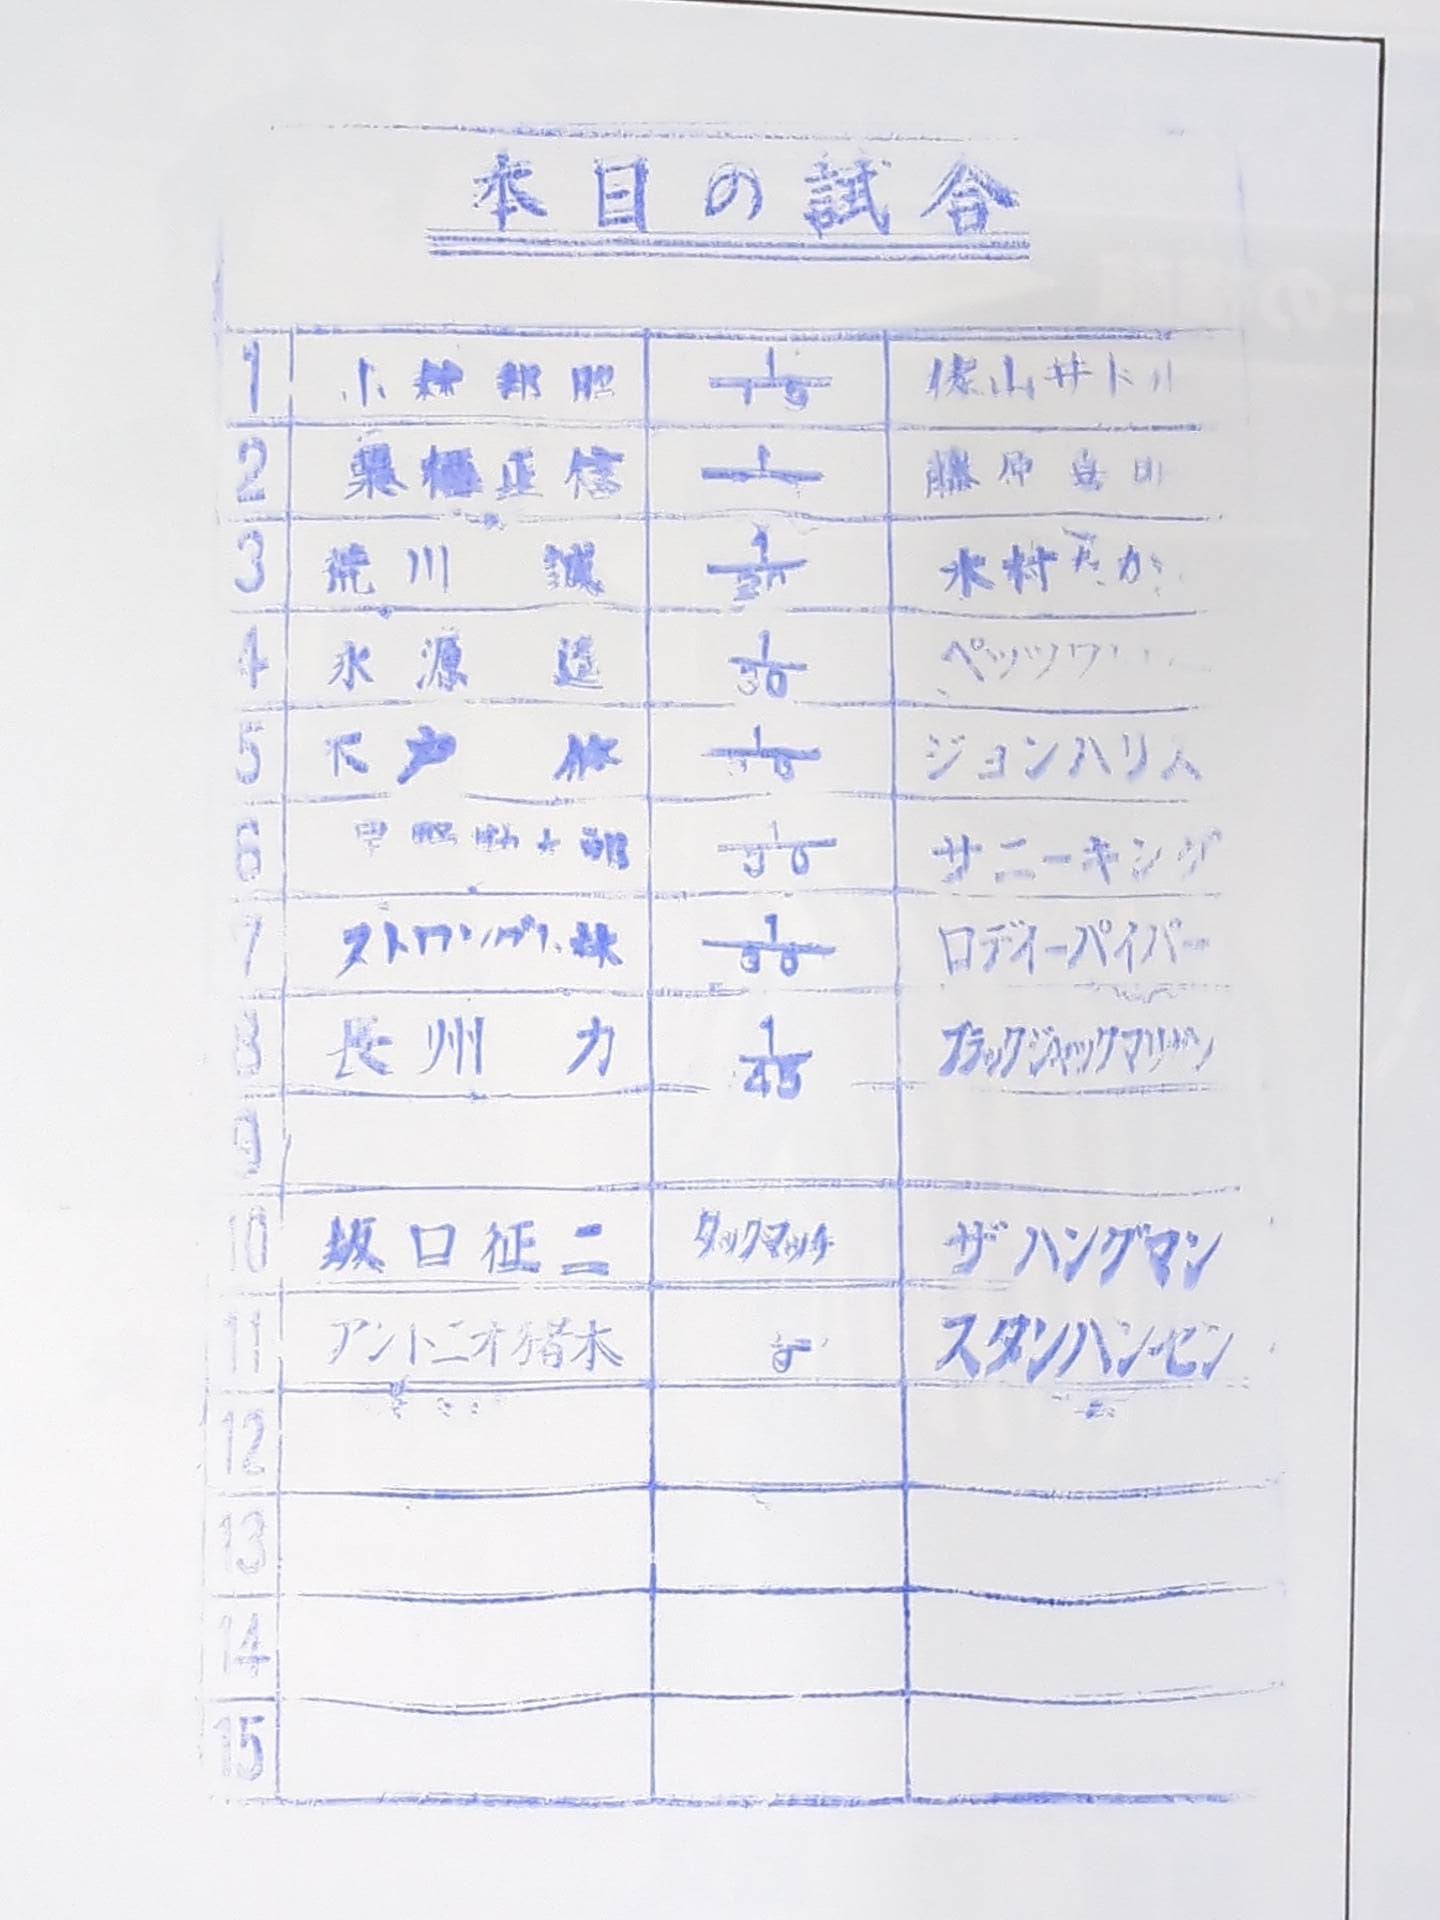 本日の試合
1 小林邦昭 1/15 佐山サトル
2 栗栖正信 1 藤原喜明
3 荒川 誠 1/20 木村たかし
4 永源 遥 1/30 ペッツワ
5 木戸 修 1/30 ジョンハリス
6 星野勘太郎 1/30 サニーキング
7 ストロング小林 1/30 ロディーパイパー
8 長州 力 1/45 ブラックジャックマリガン
9
10 坂口征二 タックマッチ ザハングマン
11 アントニオ猪木 スタンハンセン
12
13
14
15